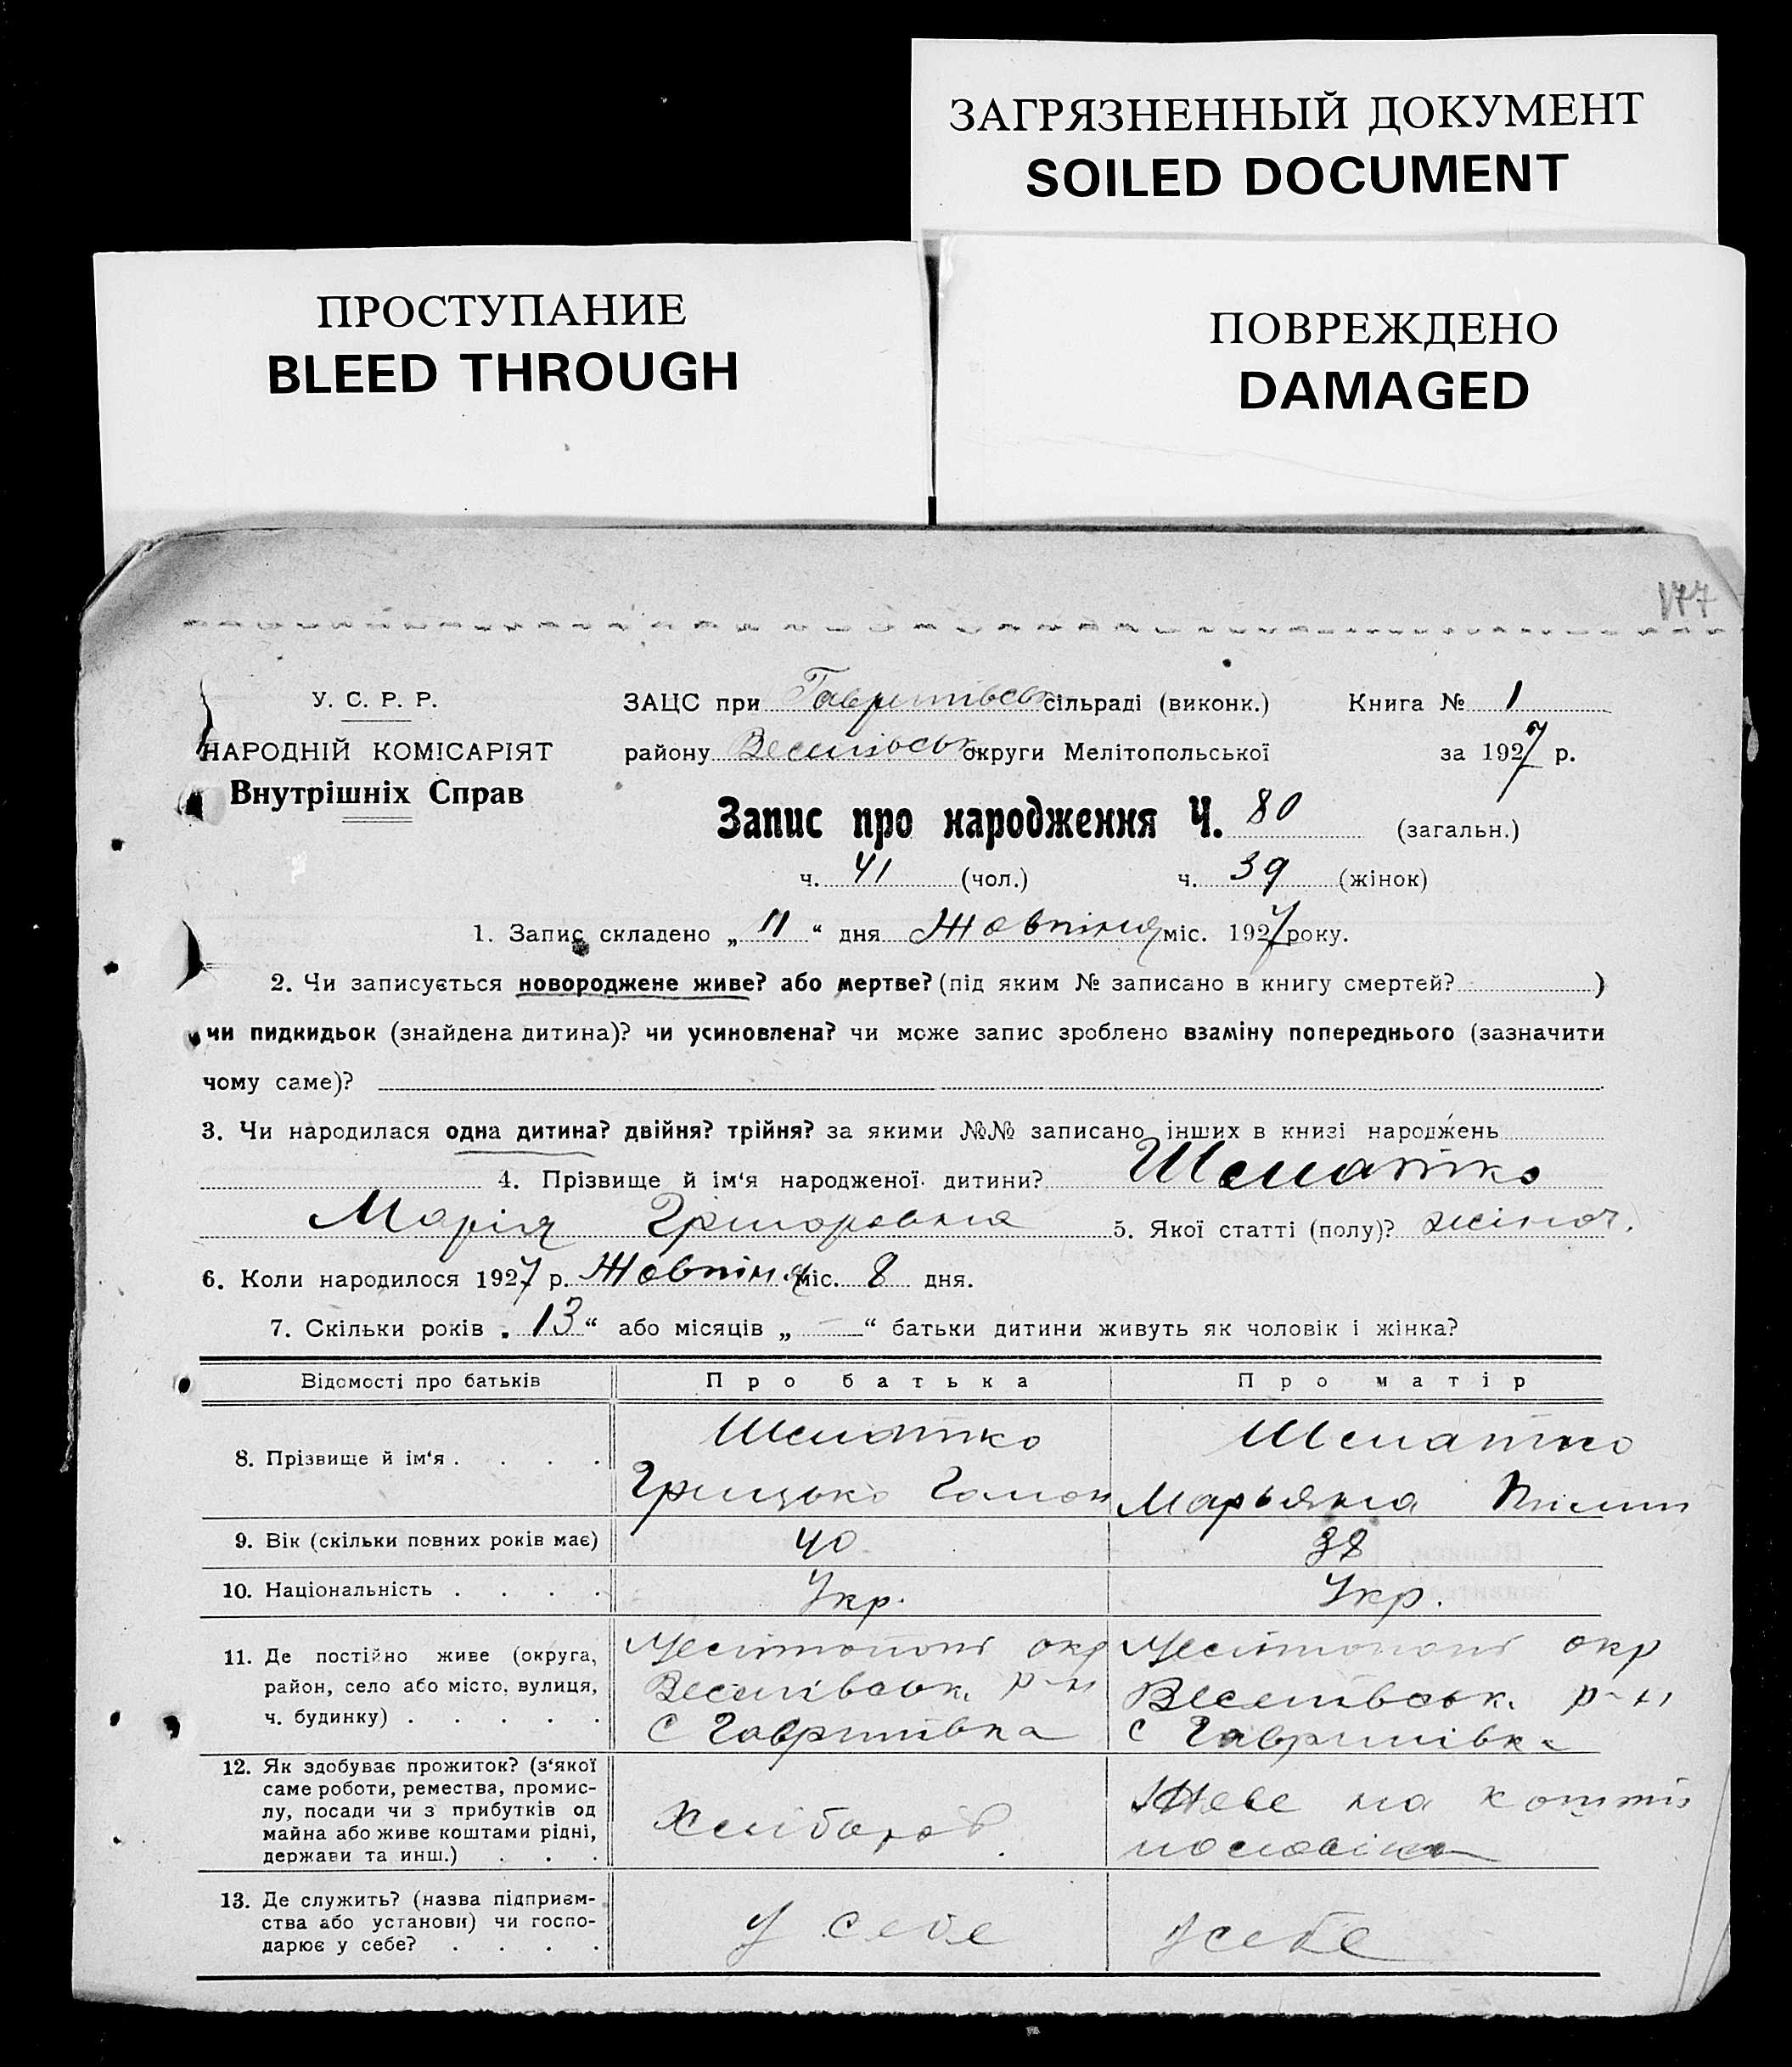 ЗАГРЯЗНЕННЫЙ ДОКУМЕНТ
SOILED DOCUMENT
ПРОСТУПАНИЕ
BLEED THROUGH
ПОВРЕЖДЕНО
DAMAGED
177
У. С. Р. Р.
НАРОДНІЙ КОМІСАРІЯТ
Внутрішніх Справ
ЗАЦС при Гаврилівськ сільраді (виконк.) Книга № 1
району Веселівськ округи Мелітопольської за 1927 р.
Запис про народження Ч. 80 (загальн.)
ч. 41 (чол.) ч. 39 (жінок)
1. Запис складено „ 11 “ дня Жовтня міс. 1927 року.
2. Чи записується новороджене живе? або мертве? (під яким № записано в книгу смертей? )
чи пидкидьок (знайдена дитина)? чи усиновлена? чи може запис зроблено взаміну попереднього (зазначити
чому саме)?
3. Чи народилася одна дитина? двійня? трійня? за якими №№ записано інших в книзі народжень
4. Прізвище й ім‘я народженої дитини? Шематко
Марія Григоревна 5. Якої статті (полу)? жіноч.
6. Коли народилося 1927 р. Жовтня міс. 8 дня.
7. Скільки років „ 13 “ або місяців „ — “ батьки дитини живуть як чоловік і жінка?
Відомості про батьків Про батька Про матір
8. Прізвище й ім‘я . . . . Шематко Шематко
Грицько Марьяна
9. Вік (скільки повних років має) 40 38
10. Національність . . . . Укр. Укр.
11. Де постійно живе (округа,
район, село або місто, вулиця,
ч. будинку) . . . . .
Мелітополь окр
Веселівськ. р-н
С Гаврилівка
Мелітополь окр
Веселівськ. р-н
С Гаврилівка
12. Як здобуває прожиток? (з‘якої
саме роботи, ремества, промис-
лу, посади чи з прибутків од
майна або живе коштами рідні,
держави та инш.) . . .
Хлібороб.
Живе на кошти
13. Де служить? (назва підприєм-
ства або установи) чи госпо-
дарює у себе? . . . .
У себе
У себе